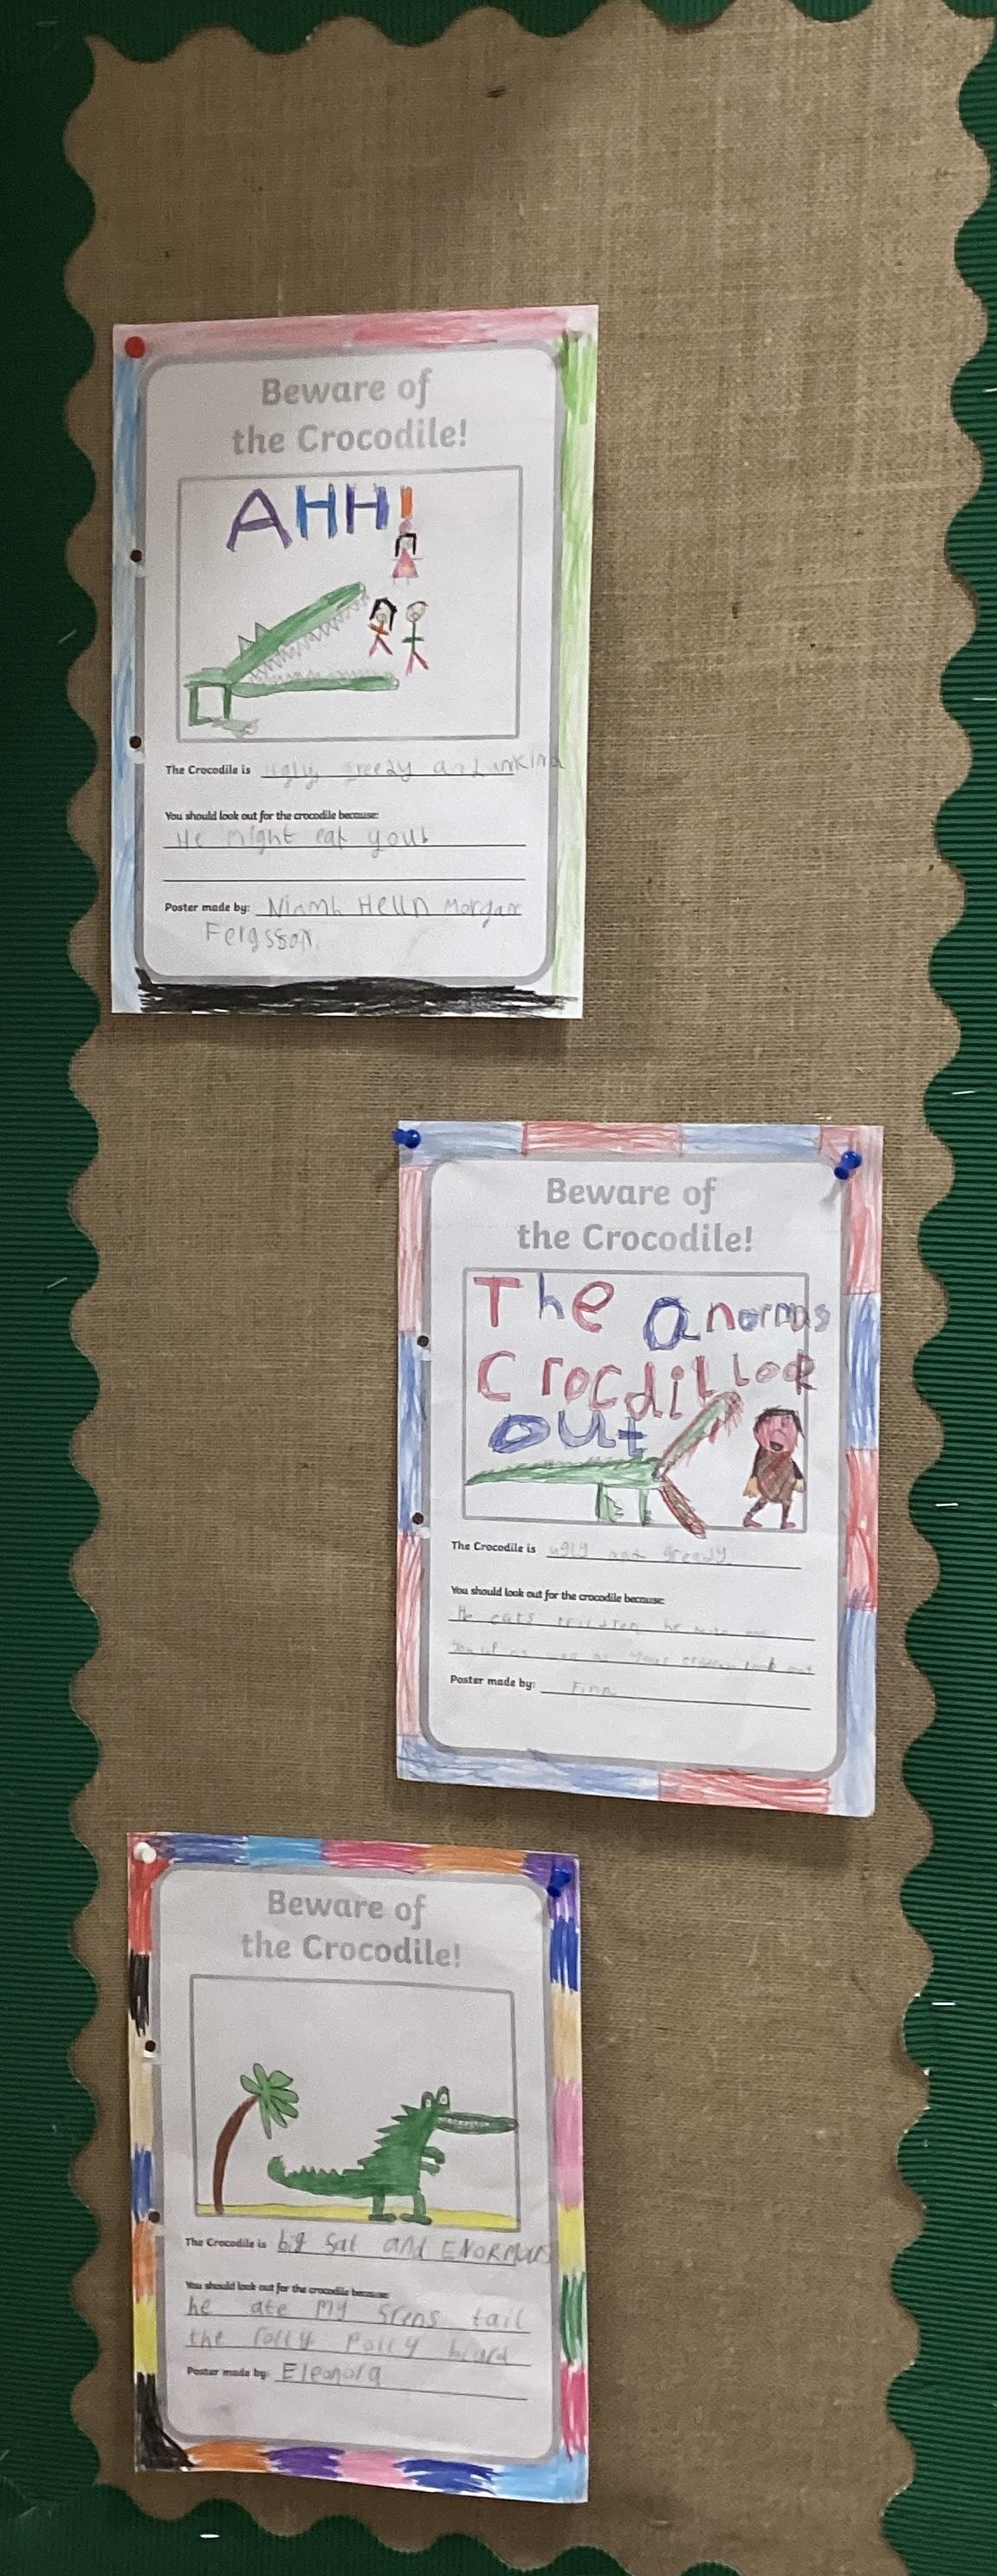 Beware of
the Crocodile!
AHH!
The Crocodile is ugly, greedy and unkind
You should look out for the crocodile because:
He might eat you!
Poster made by: Niamh Helln Morgan
Fergsson
Beware of
the Crocodile!
The anormas
Crocdil look
out
The Crocodile is ugly and greedy
You should look out for the crocodile because:
He eats he
look out
Poster made by: Finn
Beware of
the Crocodile!
The Crocodile is big fat and ENORMUS
You should look out for the crocodile because:
he ate my frens tail
the rolly polly
Poster made by: Eleonora